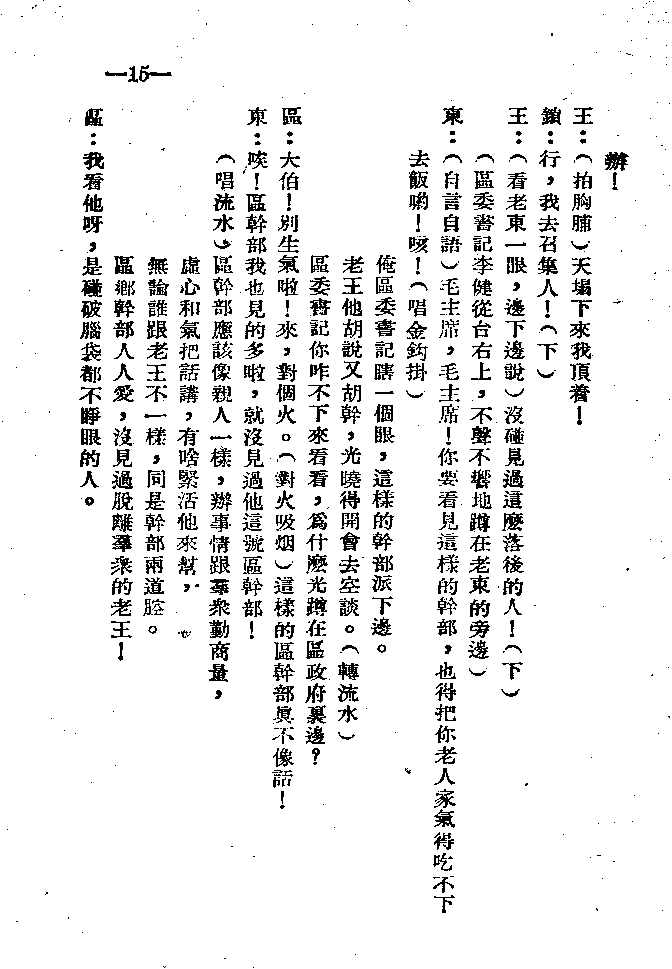 —15—
辦！
王：（拍胸脯）天塌下來我頂着！
鎖：行，我去召集人！（下）
王：（看老東一眼，邊下邊說）沒碰見過這麼落後的人！（下）
（區委書記李健從台右上，不聲不響地蹲在老東的旁邊）
東：（自言自語）毛主席，毛主席！你要看見這樣的幹部，也得把你老人家氣得吃不下
去飯喲！咳！（唱金鈎掛）
俺區委書記瞎一個眼，這樣的幹部派下邊。
老王他胡說又胡幹，光曉得開會去空談。（轉流水）
區委書記你咋不下來看看，爲什麼光蹲在區政府裏邊？
區：大伯！別生氣啦！來，對個火。（對火吸烟）這樣的區幹部眞不像話！
東：唉！區幹部我也見的多啦，就沒見過他這號區幹部！
（唱流水）區幹部應該像親人一樣，辦事情跟羣衆勤商量，
虛心和氣把話講，有啥緊活他來幫，
無論誰跟老王不一樣，同是幹部兩道腔。
區鄉幹部人人愛，沒見過脫離羣衆的老王！
區：我看他呀，是碰破腦袋都不睜眼的人。